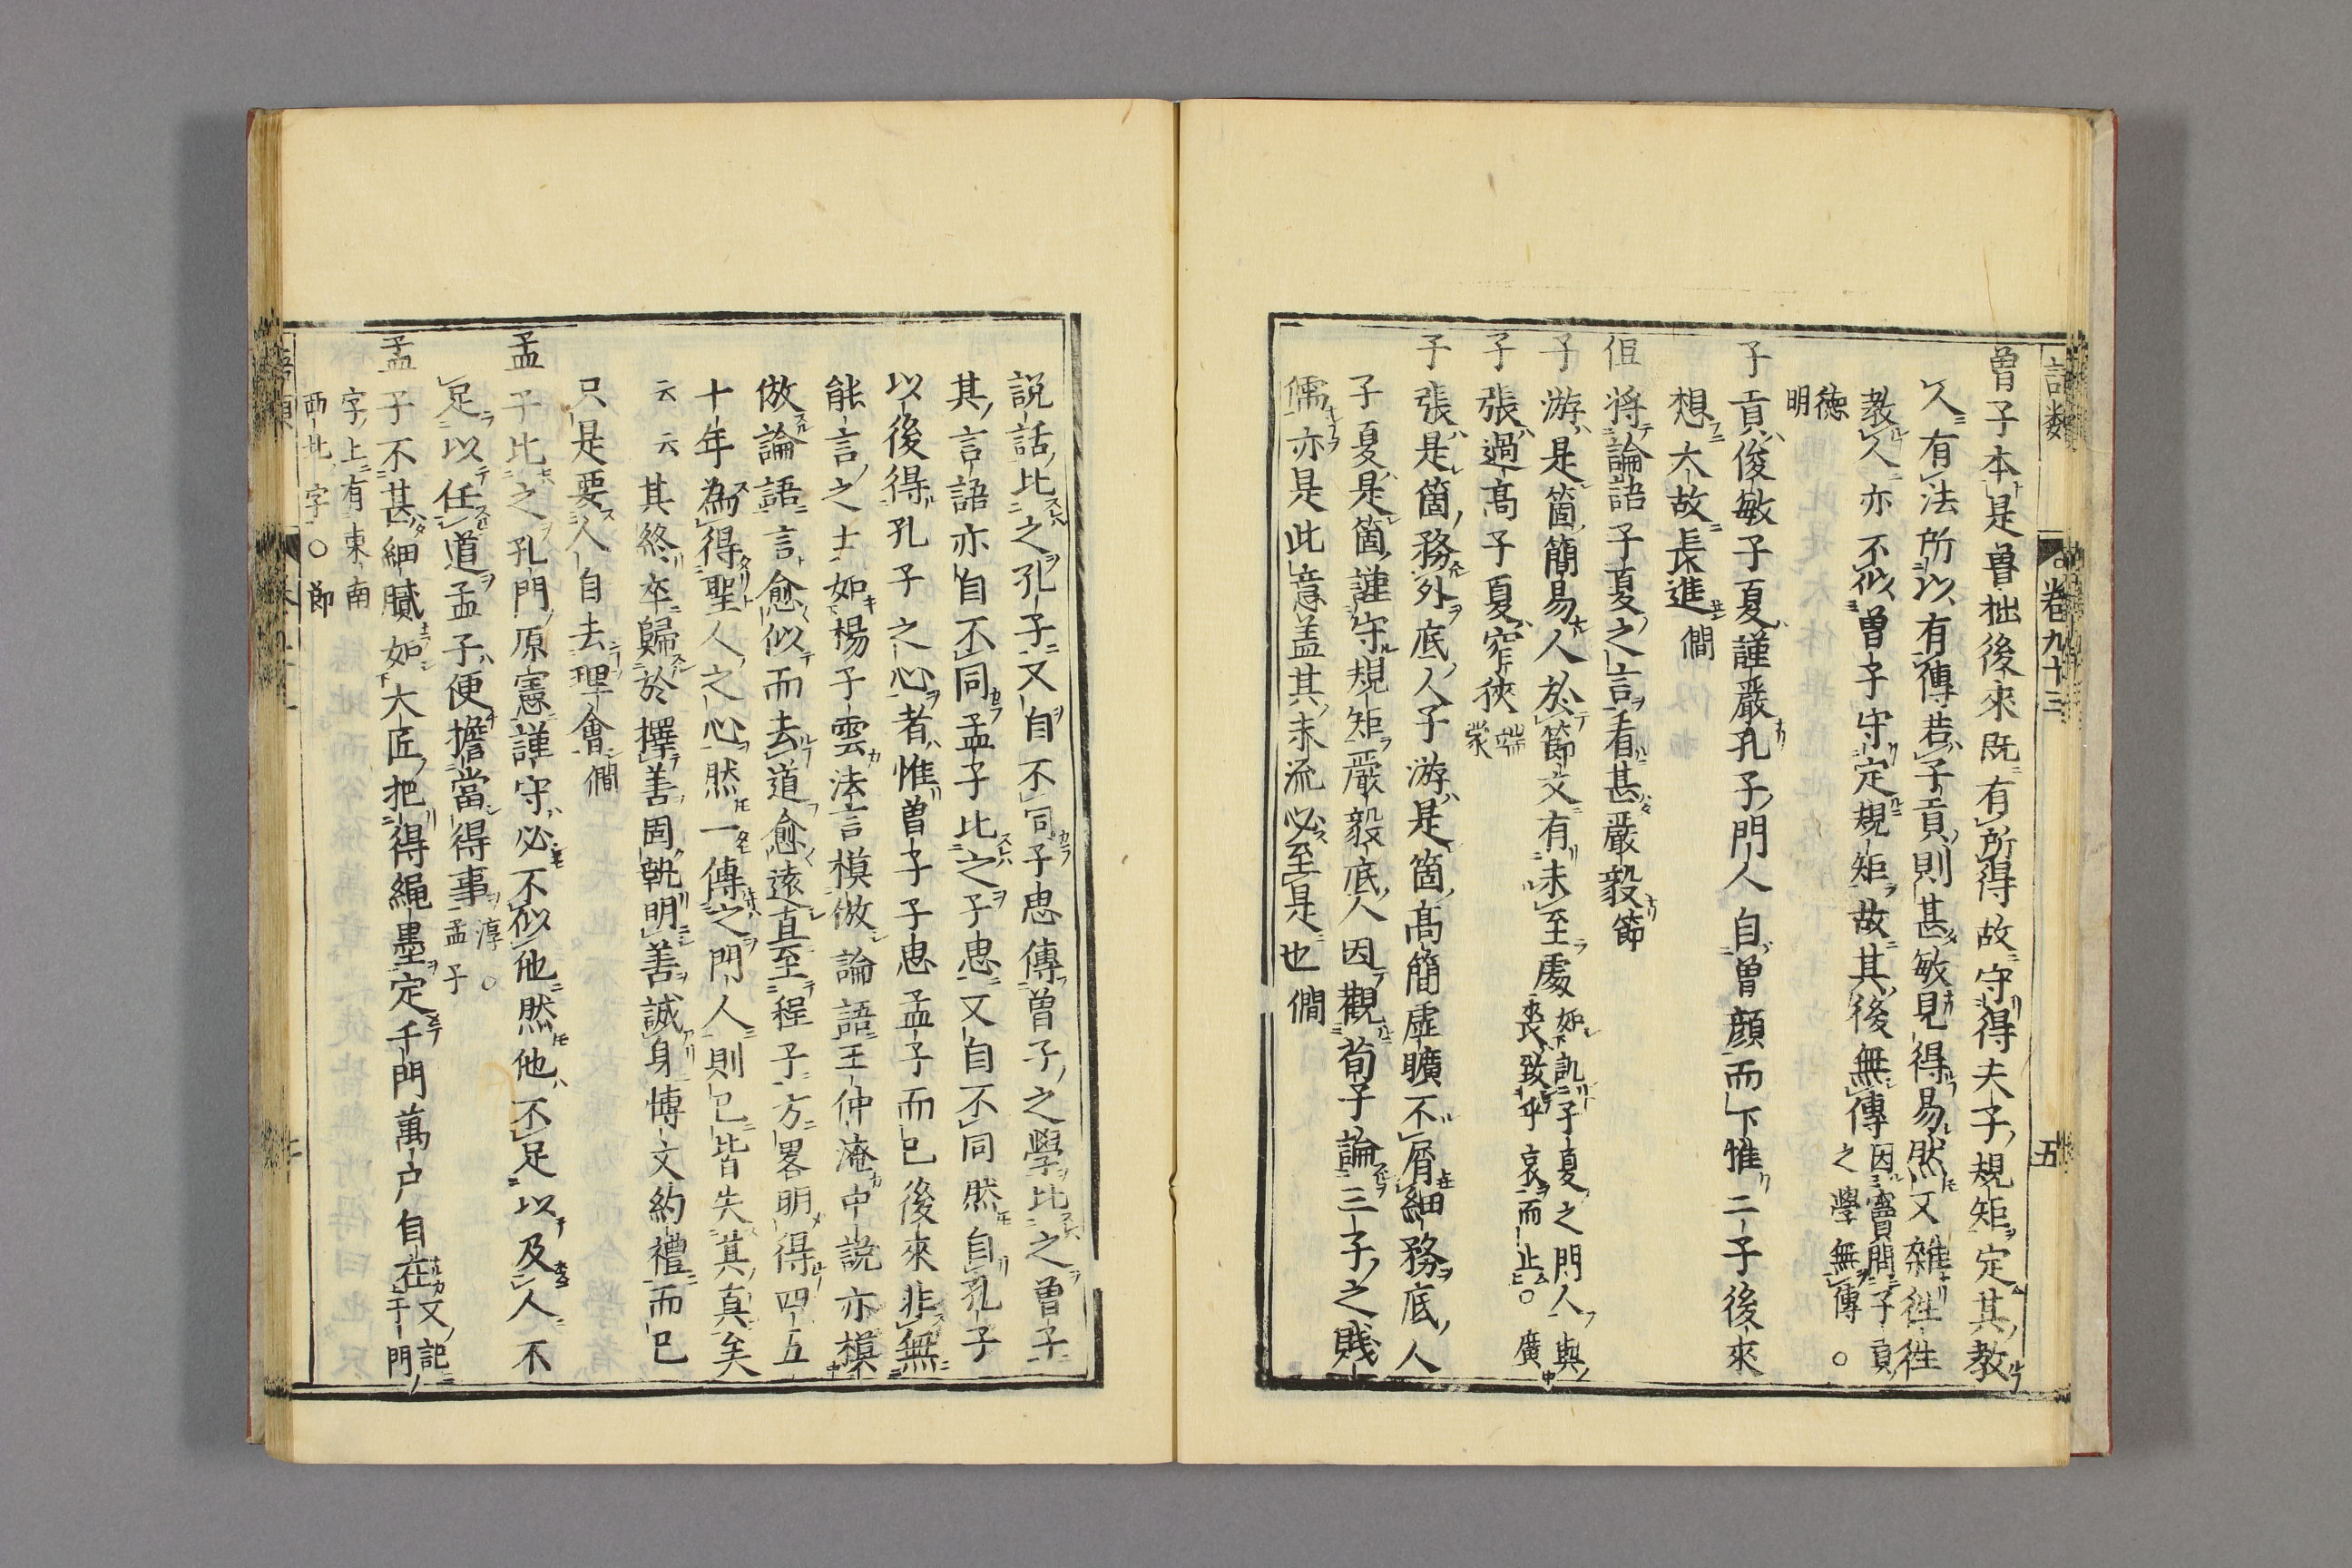 卷九十三
五
曾子本是魯拙後來旣有所得故守得夫子規矩定其教
人有法所以有傳若子貢則甚敏見得易然又雜往往
教人亦不似曾子守定規矩故其後無傳因竇問子貢之學無傳〇
德明
子貢俊敏子夏謹嚴孔子門人自曾顔而下惟二子後來
想大故長進僩
但將論語子夏之言看甚嚴毅節
子游是箇簡易人於節文有未至處如譏子夏之門人與喪致乎哀而止〇廣
子張過高子夏窄狹端蒙
子張是箇務外底人子游是箇高簡虛曠不屑細務底人
子夏是箇謹守規矩嚴毅底人因觀荀子論三子之賤
儒亦是此意盖其末流必至是也僩
說話比之孔子又自不同子思傳曾子之學比之曾子
其言語亦自不同孟子比之子思又自不同然自孔子
以後得孔子之心者惟曾子子思孟子而已後來非無
能言之士如楊子雲法言模倣論語王仲淹中說亦模
倣論語言愈似而去道愈遠直至程子方畧明得四五
十年為得聖人之心然一傳之門人則已皆失其真矣
云云其終卒歸於擇善固執明善誠身博文約禮而已
只是要人自去理會僩
孟子比之孔門原憲謹守必不似他然他不足以及人不
足以任道孟子便擔當得事淳〇孟子
孟子不甚細膩如大匠把得繩墨定千門萬户自在又記千門
字上有東南西北字〇節